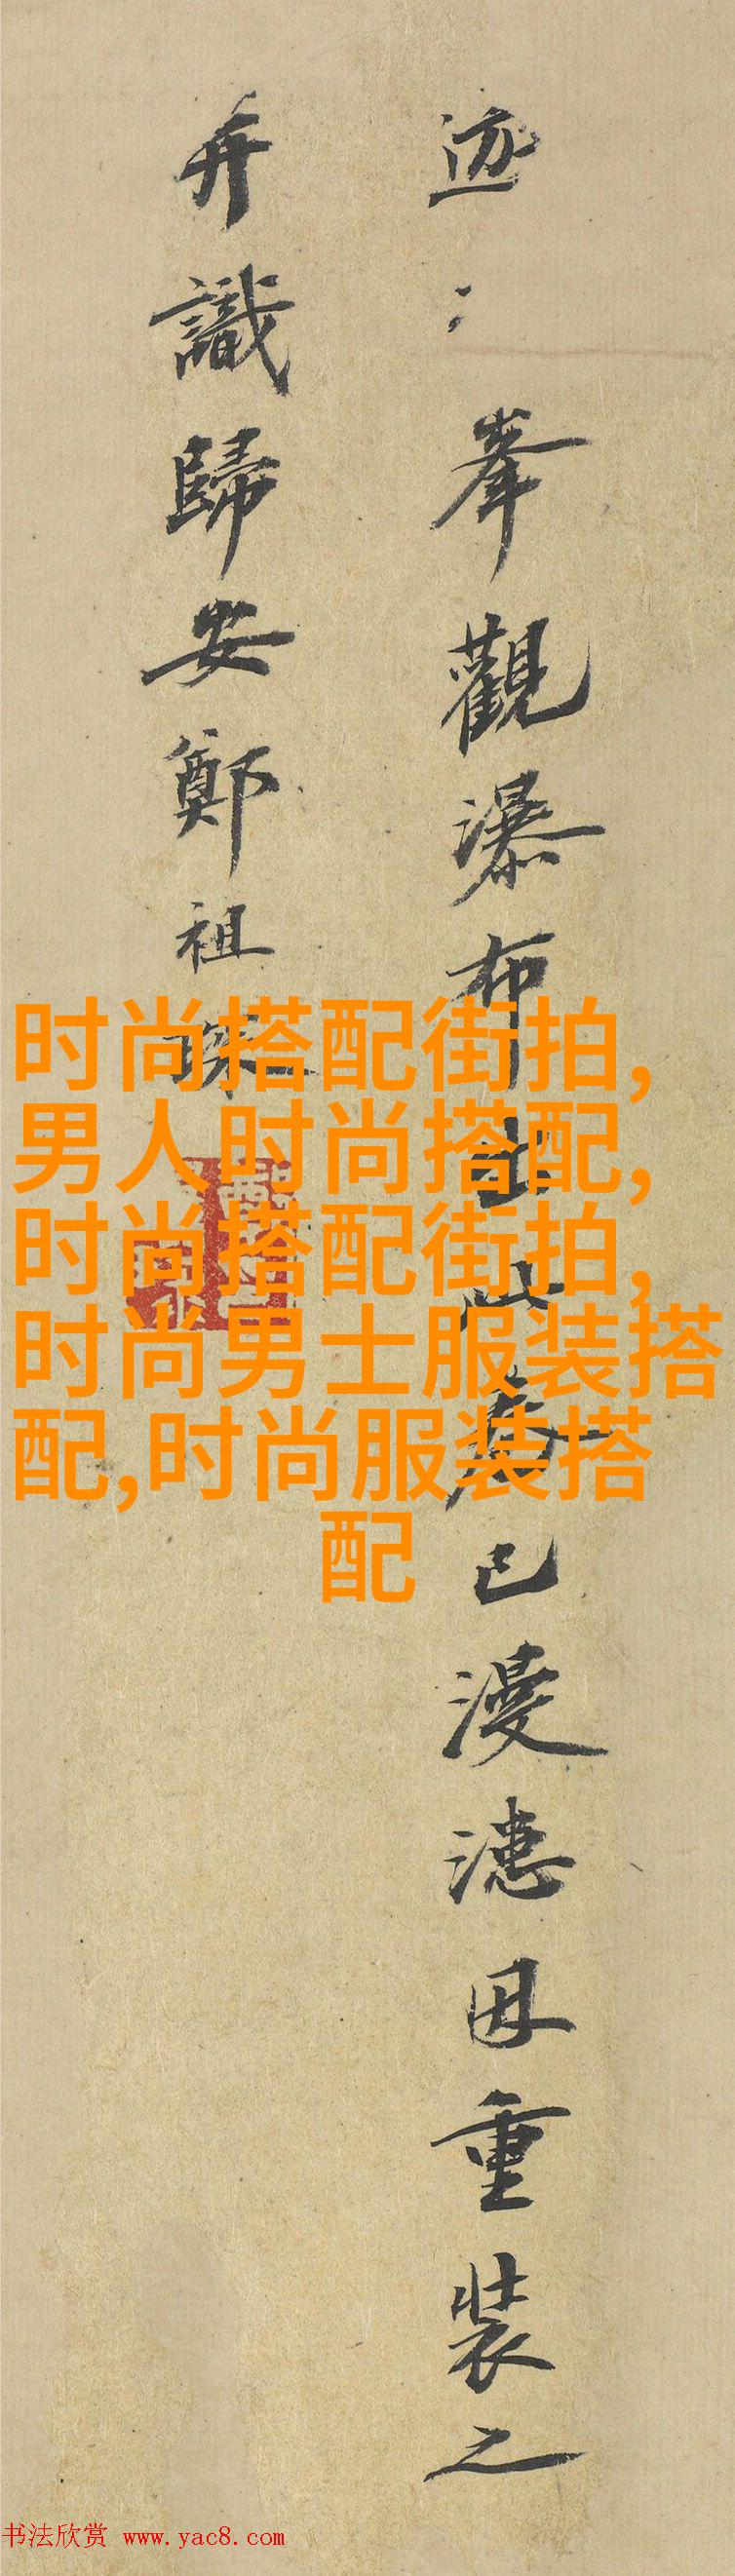 峯觀瀑布山卷已漫漶因重裝之
并識歸安鄭祖琛
时尚搭配街拍,
男人时尚搭配,
时尚搭配街拍,
时尚男士服装搭
配,时尚服装搭
配
书法欣赏 www.yac8.com